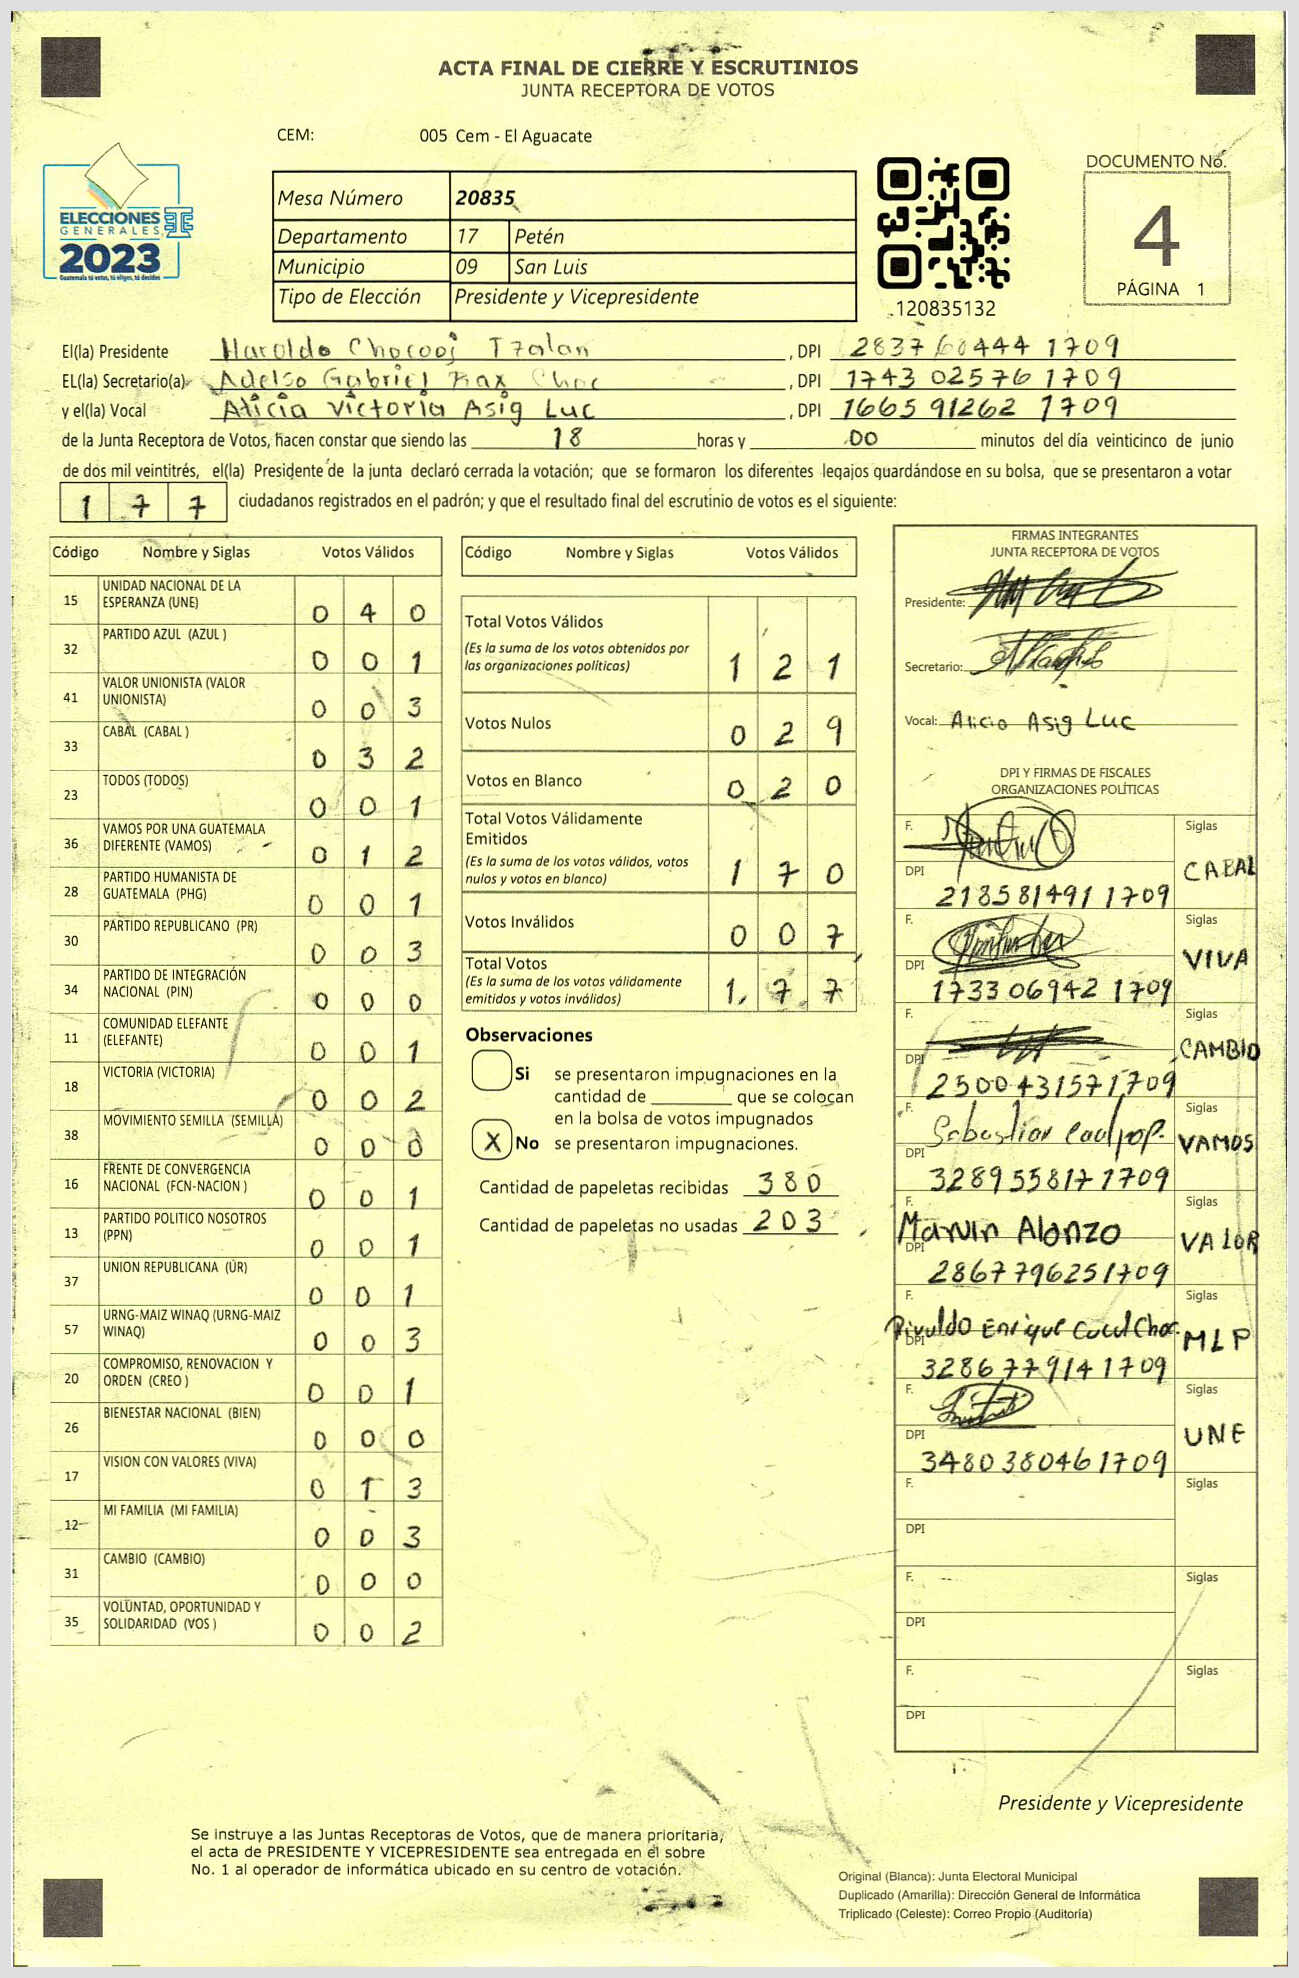 ACTA FINAL DE CIERRE Y ESCRUTINIOS
JUNTA RECEPTORA DE VOTOS
CEM: 005 Cem - El Aguacate
ELECCIONES
GENERALES
2023
Guatemala tú votas, tú eliges, tú decides
Mesa Número 20835
Departamento 17 Petén
Municipio 09 San Luis
Tipo de Elección Presidente y Vicepresidente
.120835132
DOCUMENTO No.
4
PÁGINA 1
El(la) Presidente Haroldo Chocooj Tzalan , DPI 2837 60444 1709
EL(la) Secretario(a) Adelso Gabriel Rax Choc , DPI 1743 02576 1709
y el(la) Vocal Alicia Victoria Asig Luc , DPI 1665 91262 1709
de la Junta Receptora de Votos, hacen constar que siendo las 18 horas y 00 minutos del día veinticinco de junio
de dos mil veintitrés, el(la) Presidente de la junta declaró cerrada la votación; que se formaron los diferentes legajos guardándose en su bolsa, que se presentaron a votar
1 7 7 ciudadanos registrados en el padrón; y que el resultado final del escrutinio de votos es el siguiente:
Código Nombre y Siglas Votos Válidos
15 UNIDAD NACIONAL DE LA ESPERANZA (UNE) 0 4 0
32 PARTIDO AZUL (AZUL ) 0 0 1
41 VALOR UNIONISTA (VALOR UNIONISTA) 0 0 3
33 CABAL (CABAL ) 0 3 2
23 TODOS (TODOS) 0 0 1
36 VAMOS POR UNA GUATEMALA DIFERENTE (VAMOS) 0 1 2
28 PARTIDO HUMANISTA DE GUATEMALA (PHG) 0 0 1
30 PARTIDO REPUBLICANO (PR) 0 0 3
34 PARTIDO DE INTEGRACIÓN NACIONAL (PIN) 0 0 0
11 COMUNIDAD ELEFANTE (ELEFANTE) 0 0 1
18 VICTORIA (VICTORIA) 0 0 2
38 MOVIMIENTO SEMILLA (SEMILLA) 0 0 0
16 FRENTE DE CONVERGENCIA NACIONAL (FCN-NACION ) 0 0 1
13 PARTIDO POLITICO NOSOTROS (PPN) 0 0 1
37 UNION REPUBLICANA (UR) 0 0 1
57 URNG-MAIZ WINAQ (URNG-MAIZ WINAQ) 0 0 3
20 COMPROMISO, RENOVACION Y ORDEN (CREO ) 0 0 1
26 BIENESTAR NACIONAL (BIEN) 0 0 0
17 VISION CON VALORES (VIVA) 0 1 3
12 MI FAMILIA (MI FAMILIA) 0 0 3
31 CAMBIO (CAMBIO) 0 0 0
35 VOLUNTAD, OPORTUNIDAD Y SOLIDARIDAD (VOS ) 0 0 2
Código Nombre y Siglas Votos Válidos
Total Votos Válidos
(Es la suma de los votos obtenidos por las organizaciones políticas) 1 2 1
Votos Nulos 0 2 9
Votos en Blanco 0 2 0
Total Votos Válidamente Emitidos
(Es la suma de los votos válidos, votos nulos y votos en blanco) 1 7 0
Votos Inválidos 0 0 7
Total Votos
(Es la suma de los votos válidamente emitidos y votos inválidos) 1 7 7
Observaciones
Si se presentaron impugnaciones en la
cantidad de ________ que se colocan
en la bolsa de votos impugnados
X No se presentaron impugnaciones.
Cantidad de papeletas recibidas 380
Cantidad de papeletas no usadas 203
FIRMAS INTEGRANTES
JUNTA RECEPTORA DE VOTOS
Presidente:
Secretario:
Vocal: Alicia Asig Luc
DPI Y FIRMAS DE FISCALES
ORGANIZACIONES POLÍTICAS
F. Siglas
DPI CABAL
2185 81491 1709
F. Siglas
DPI VIVA
1733 06942 1709
F. Siglas
DPI CAMBIO
2500431571709
F. Sebastian Caal pop. Siglas
DPI VAMOS
3289558171709
F. Marvin Alonzo Siglas
DPI VALOR
2867796251709
F. Rivaldo Enrique Cucul Choc. Siglas
DPI MLP
3286779141709
F. Siglas
DPI UNE
3480380461709
F. Siglas
DPI
F. Siglas
DPI
F. Siglas
DPI
Presidente y Vicepresidente
Se instruye a las Juntas Receptoras de Votos, que de manera prioritaria,
el acta de PRESIDENTE Y VICEPRESIDENTE sea entregada en el sobre
No. 1 al operador de informática ubicado en su centro de votación.
Original (Blanca): Junta Electoral Municipal
Duplicado (Amarilla): Dirección General de Informática
Triplicado (Celeste): Correo Propio (Auditoría)